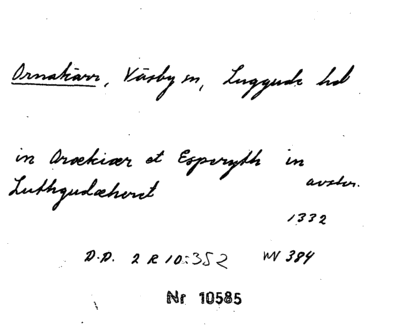 Ornakärr, Väsby sn, Luggude hd
in Orækiær et Esperyth in
Luthgudæheret avskr.
1332
D.D. 2 R 10:352 NV 384
Nr 10585